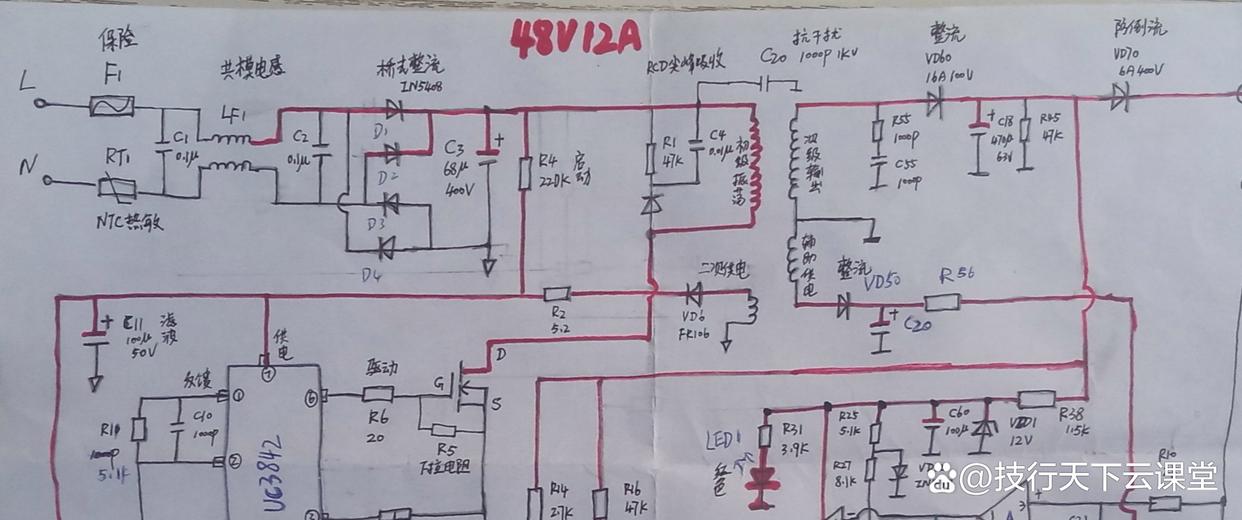 48V12A
保险
F1
L
共模电感
LF1
桥式整流
IN5408
RCD尖峰吸收
C20
抗干扰
1000p 1KV
整流
VD60
16A 100V
防倒流
VD70
6A 400V
C1
0.1μ
C2
0.1μ
D1
D2
D3
D4
C3
68μ
400V
R4
220K
启动
R1
47K
C4
0.01μ
初级振荡
次级输出
R55
100p
C55
100p
C18
470μ
63V
47K
N
RT1
NTC热敏
辅助供电
整流
VD50
R56
C20
二次供电
VD6
FR106
R2
5.2
E11
100μ
50V
滤波
供电
⑦
反馈
①
②
C10
1000p
5.1K
UC3842
⑥
驱动
R6
20
G
D
S
R5
下拉电阻
R14
27K
R16
47K
LED1
红色
R31
3.9K
R25
5.1K
R27
8.1K
C60
100μ
12V
R38
1.5K
R10
3
@技行天下云课堂